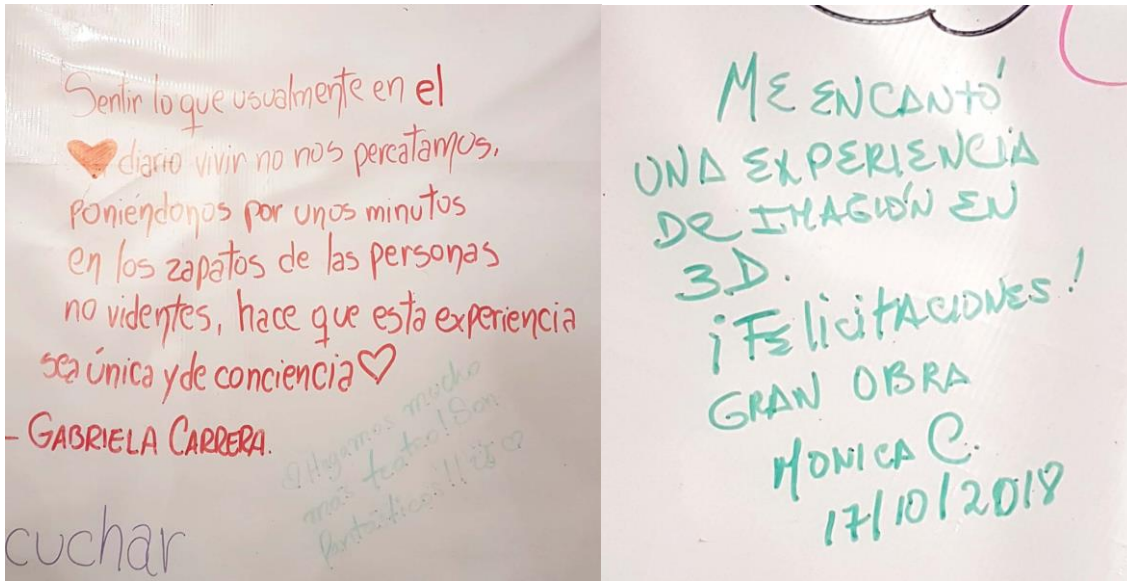 Sentir lo que usualmente en el
diario vivir no nos percatamos,
poniéndonos por unos minutos
en los zapatos de las personas
no videntes, hace que esta experiencia
sea única y de conciencia
- GABRIELA CARRERA.
Hagamos mucho
más teatro! Son
cuchar
ME ENCANTÓ
UNA EXPERIENCIA
DE IMAGIÓN EN
3.D.
¡FELICITACIONES!
GRAN OBRA
MONICA C.
17/10/2018